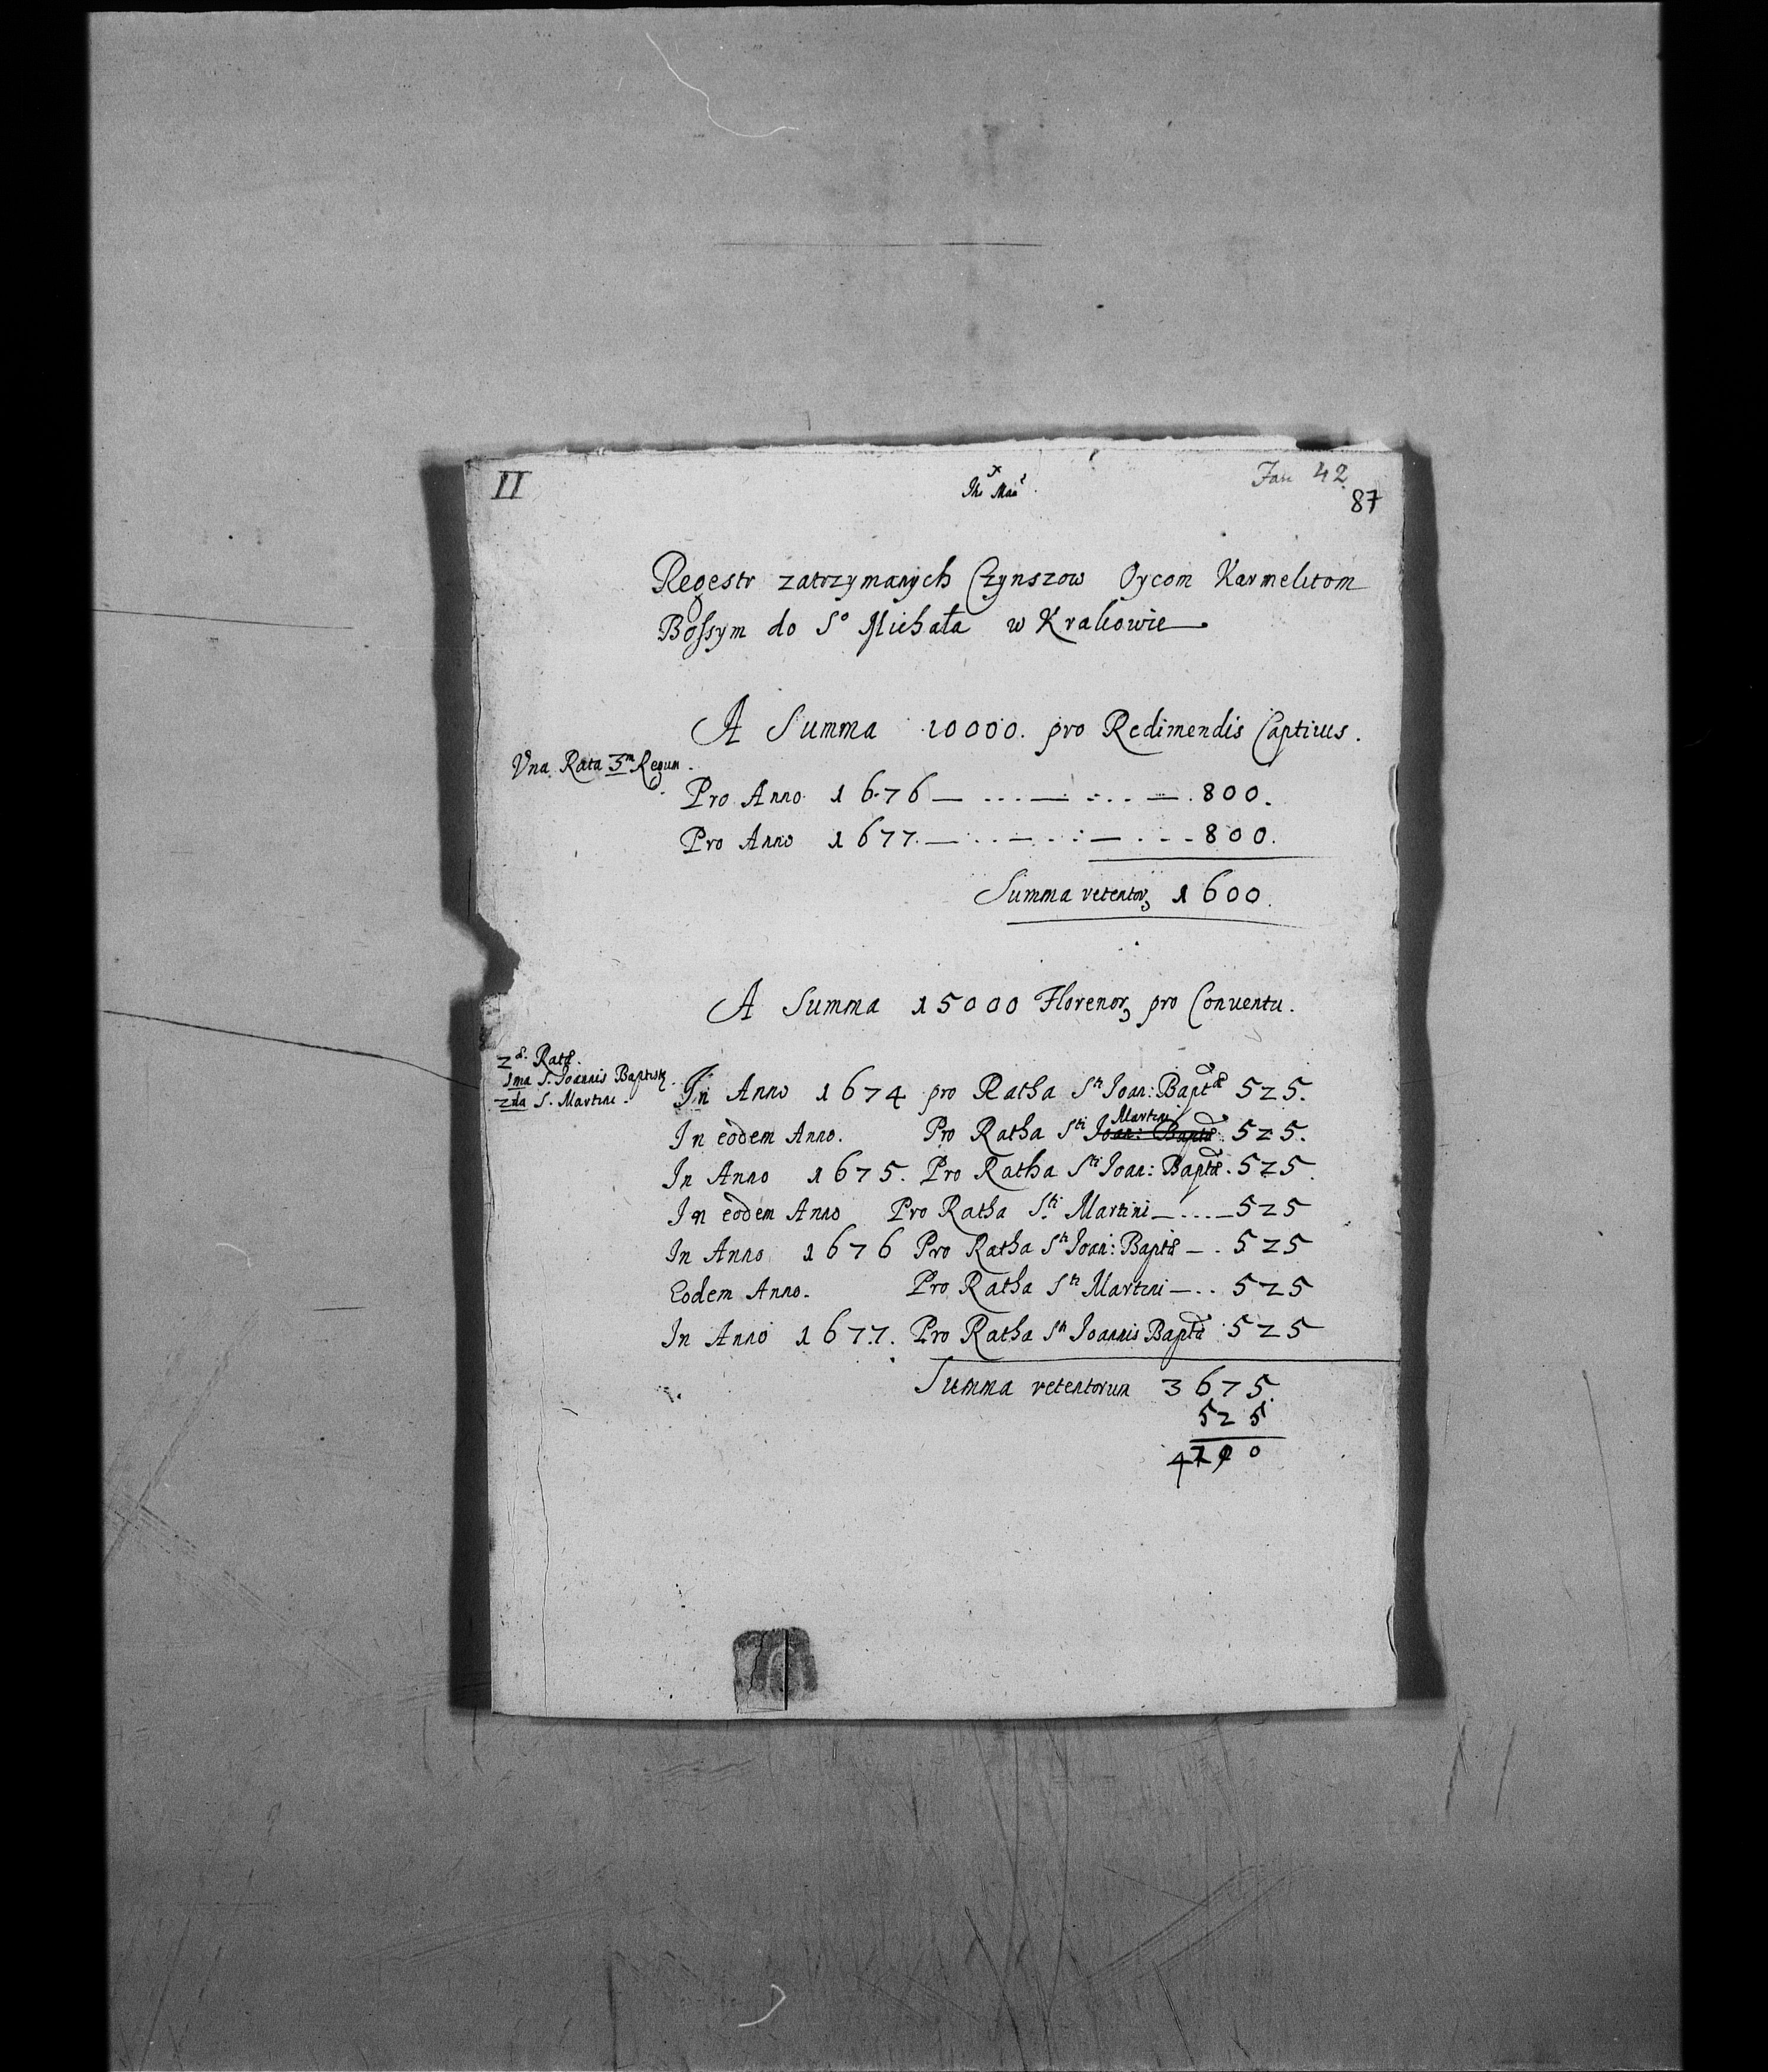 II
Jhs Maa
Fasc 42
87
Regestr zatrzymanych Czynszow Oycom Karmelitom
Bossym do So Michała w Krakowie
A Summa 10000. pro Redimendis Captiuis.
Vna Rata 3m Regum.
Pro Anno 1676 — ... — ... — . 800.
Pro Anno 1677. — ... — ... — ... 800.
Summa retentorꝫ 1600.
A Summa 15000 Florenorꝫ pro Conuentu.
2ae. Ratae.
1ma S. Joannis Baptistae.
2da S. Martini.
In Anno 1674 pro Ratha Sti Joan: Bapta 525.
In eodem Anno. Pro Ratha Sti Joan: Bapta Martini 525.
In Anno 1675. Pro Ratha Sti Joan: Bapta. 525.
In eodem Anno Pro Ratha Sti Martini — .... — 525
In Anno 1676 Pro Ratha Sti Joan: Bapta — . 525
Eodem Anno. Pro Ratha Sti Martini — .. 525
In Anno 1677. Pro Ratha Sti Joannis Bapta 525
Summa retentorum 3675.
525